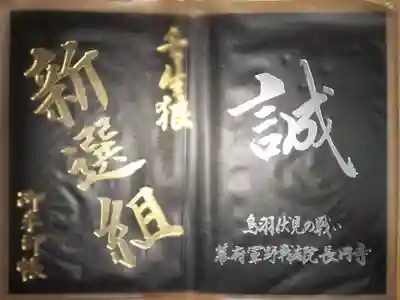 壬生狼
新選組
御朱印帳
誠
鳥羽伏見の戦い
幕府軍野戦病院長円寺